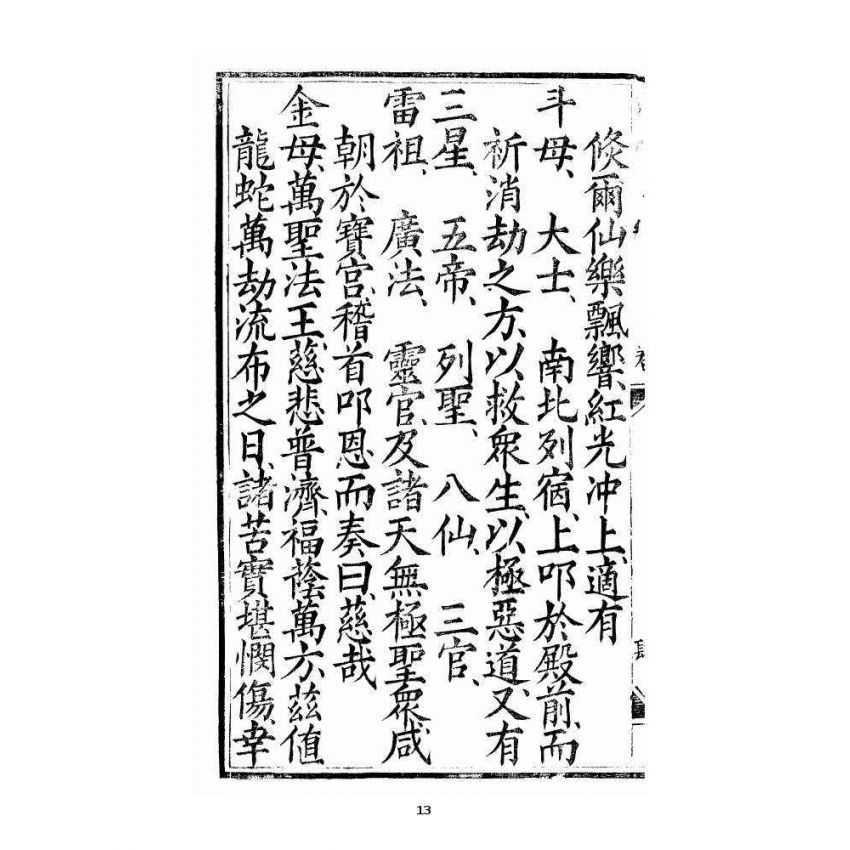 倐爾仙樂飄響、紅光冲上、適有
斗母、大士、南北列宿、上叩於殿前、而
祈消劫之方、以救衆生、以極惡道、又有
三星、五帝、列聖、八仙、三官、
雷祖、廣法、靈官、及諸天無極聖衆、咸
朝於寶宮、稽首叩恩、而奏曰、慈哉
金母、萬聖法王、慈悲普濟、福蔭萬方、茲值
龍蛇萬劫流布之日、諸苦實堪憫傷、幸
13